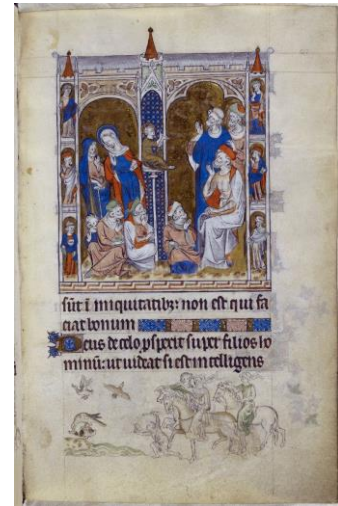 sūt ī iniquitatibz: non est qui fa
ciat bonum
Deus de celo pspexit super filios ho
minū: ut uideat si est intelligens